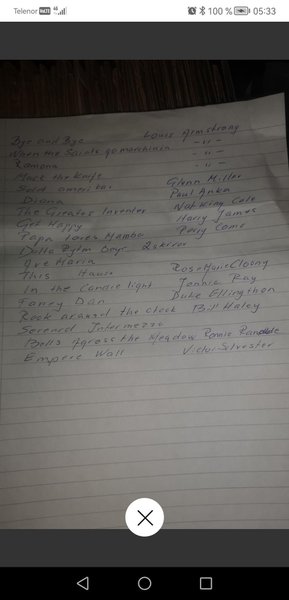 Telenor VoLTE 4G 100 % 05:33
Bye and Bye Louis Armstrong
When the Saints go marchinin - " -
Ramona - " -
Mack the Knife - " -
Sold amerika. Glenn Miller
Diana Paul Anka
The Greates Inventer Nat King Cole
Get Happy Harry James
Papa loves Mambo Perry Como
Delta Rytm Boys 2 skivor
Ave Maria
This House RoseMarieCloony
In the Candle light Jonnie Ray
Fancy Dan Duke Ellington
Rock around the clock Bill Haley
Serenad Intermezzo
Bells Across the Meadow Ronnie Ranalde
Empere Wall Victor Silvester